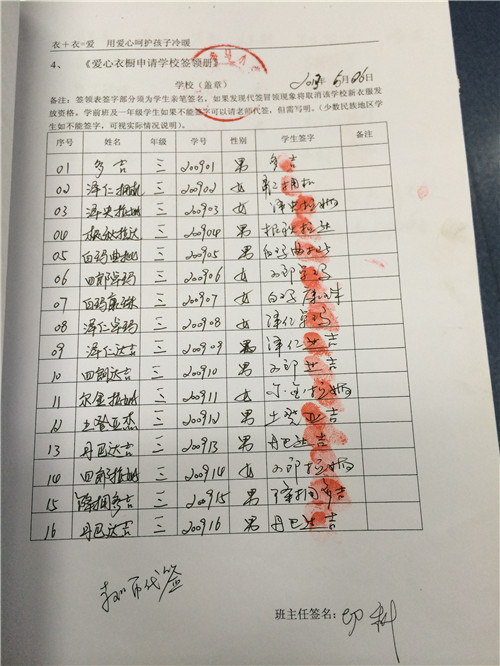 衣+衣=爱 用爱心呵护孩子冷暖
4、 《爱心衣橱申请学校签领册》
学校（盖章）
备注：签领表签字部分须为学生亲笔签名，如果发现代签冒领现象将取消该学校新衣服发
放资格。学前班及一年级学生如果不能签字可以请老师代签，但需写明。（少数民族地区学
生如不能签字，可视实际情况说明）。
序号 姓名 年级 学号 性别 学生签字 备注
01 多吉 三 200901 男 多吉
02 泽仁拥 三 200902 女
03 泽央拉姆 三 200903 女 泽央拉姆
04 三 200904 男
05 白玛曲批 三 200905 男 白玛曲
06 四郎宗玛 三 200906 女 四郎宗玛
07 白玛 三 200907 女 白玛
08 泽仁宗玛 三 200908 女 泽仁宗玛
09 泽仁达吉 三 200909 男 泽仁达吉
10 四郎达吉 三 200910 男 四郎达吉
11 尔金拉姆 三 200911 女 尔金拉姆
12 土登亚杰 三 200912 男 土登亚吉
13 丹巴达吉 三 200913 男 丹巴达吉
14 四郎拉姆 三 200914 女 四郎拉姆
15 拥多吉 三 200915 男 拥多吉
16 丹巴达吉 三 200916 男 丹巴达吉
代签
班主任签名：